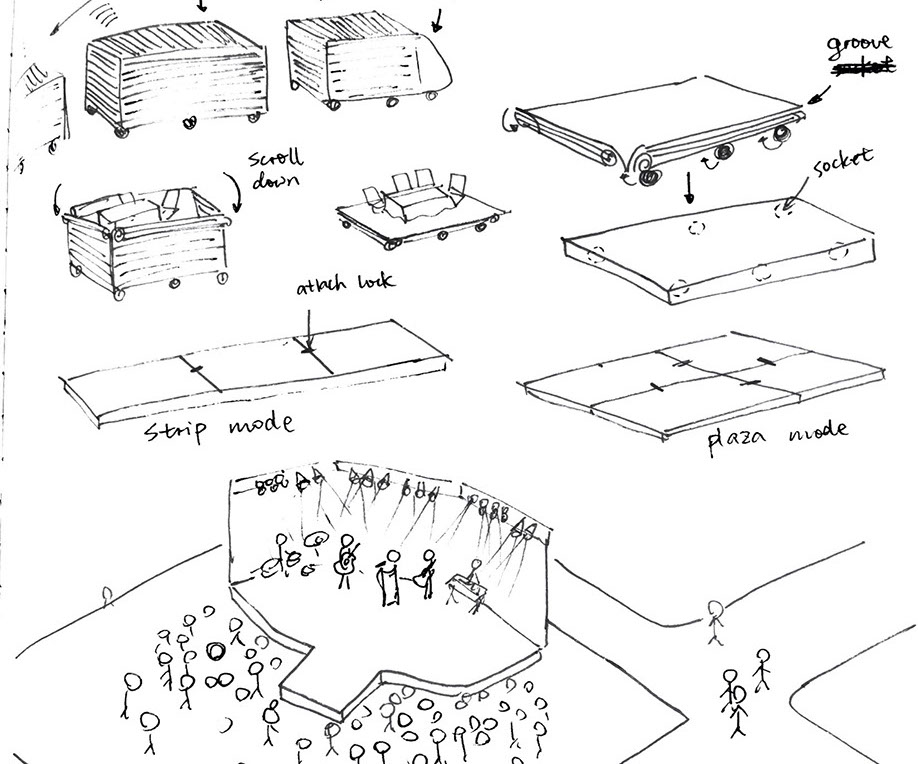 groove
scroll
down
socket
attach lock
strip mode
plaza mode